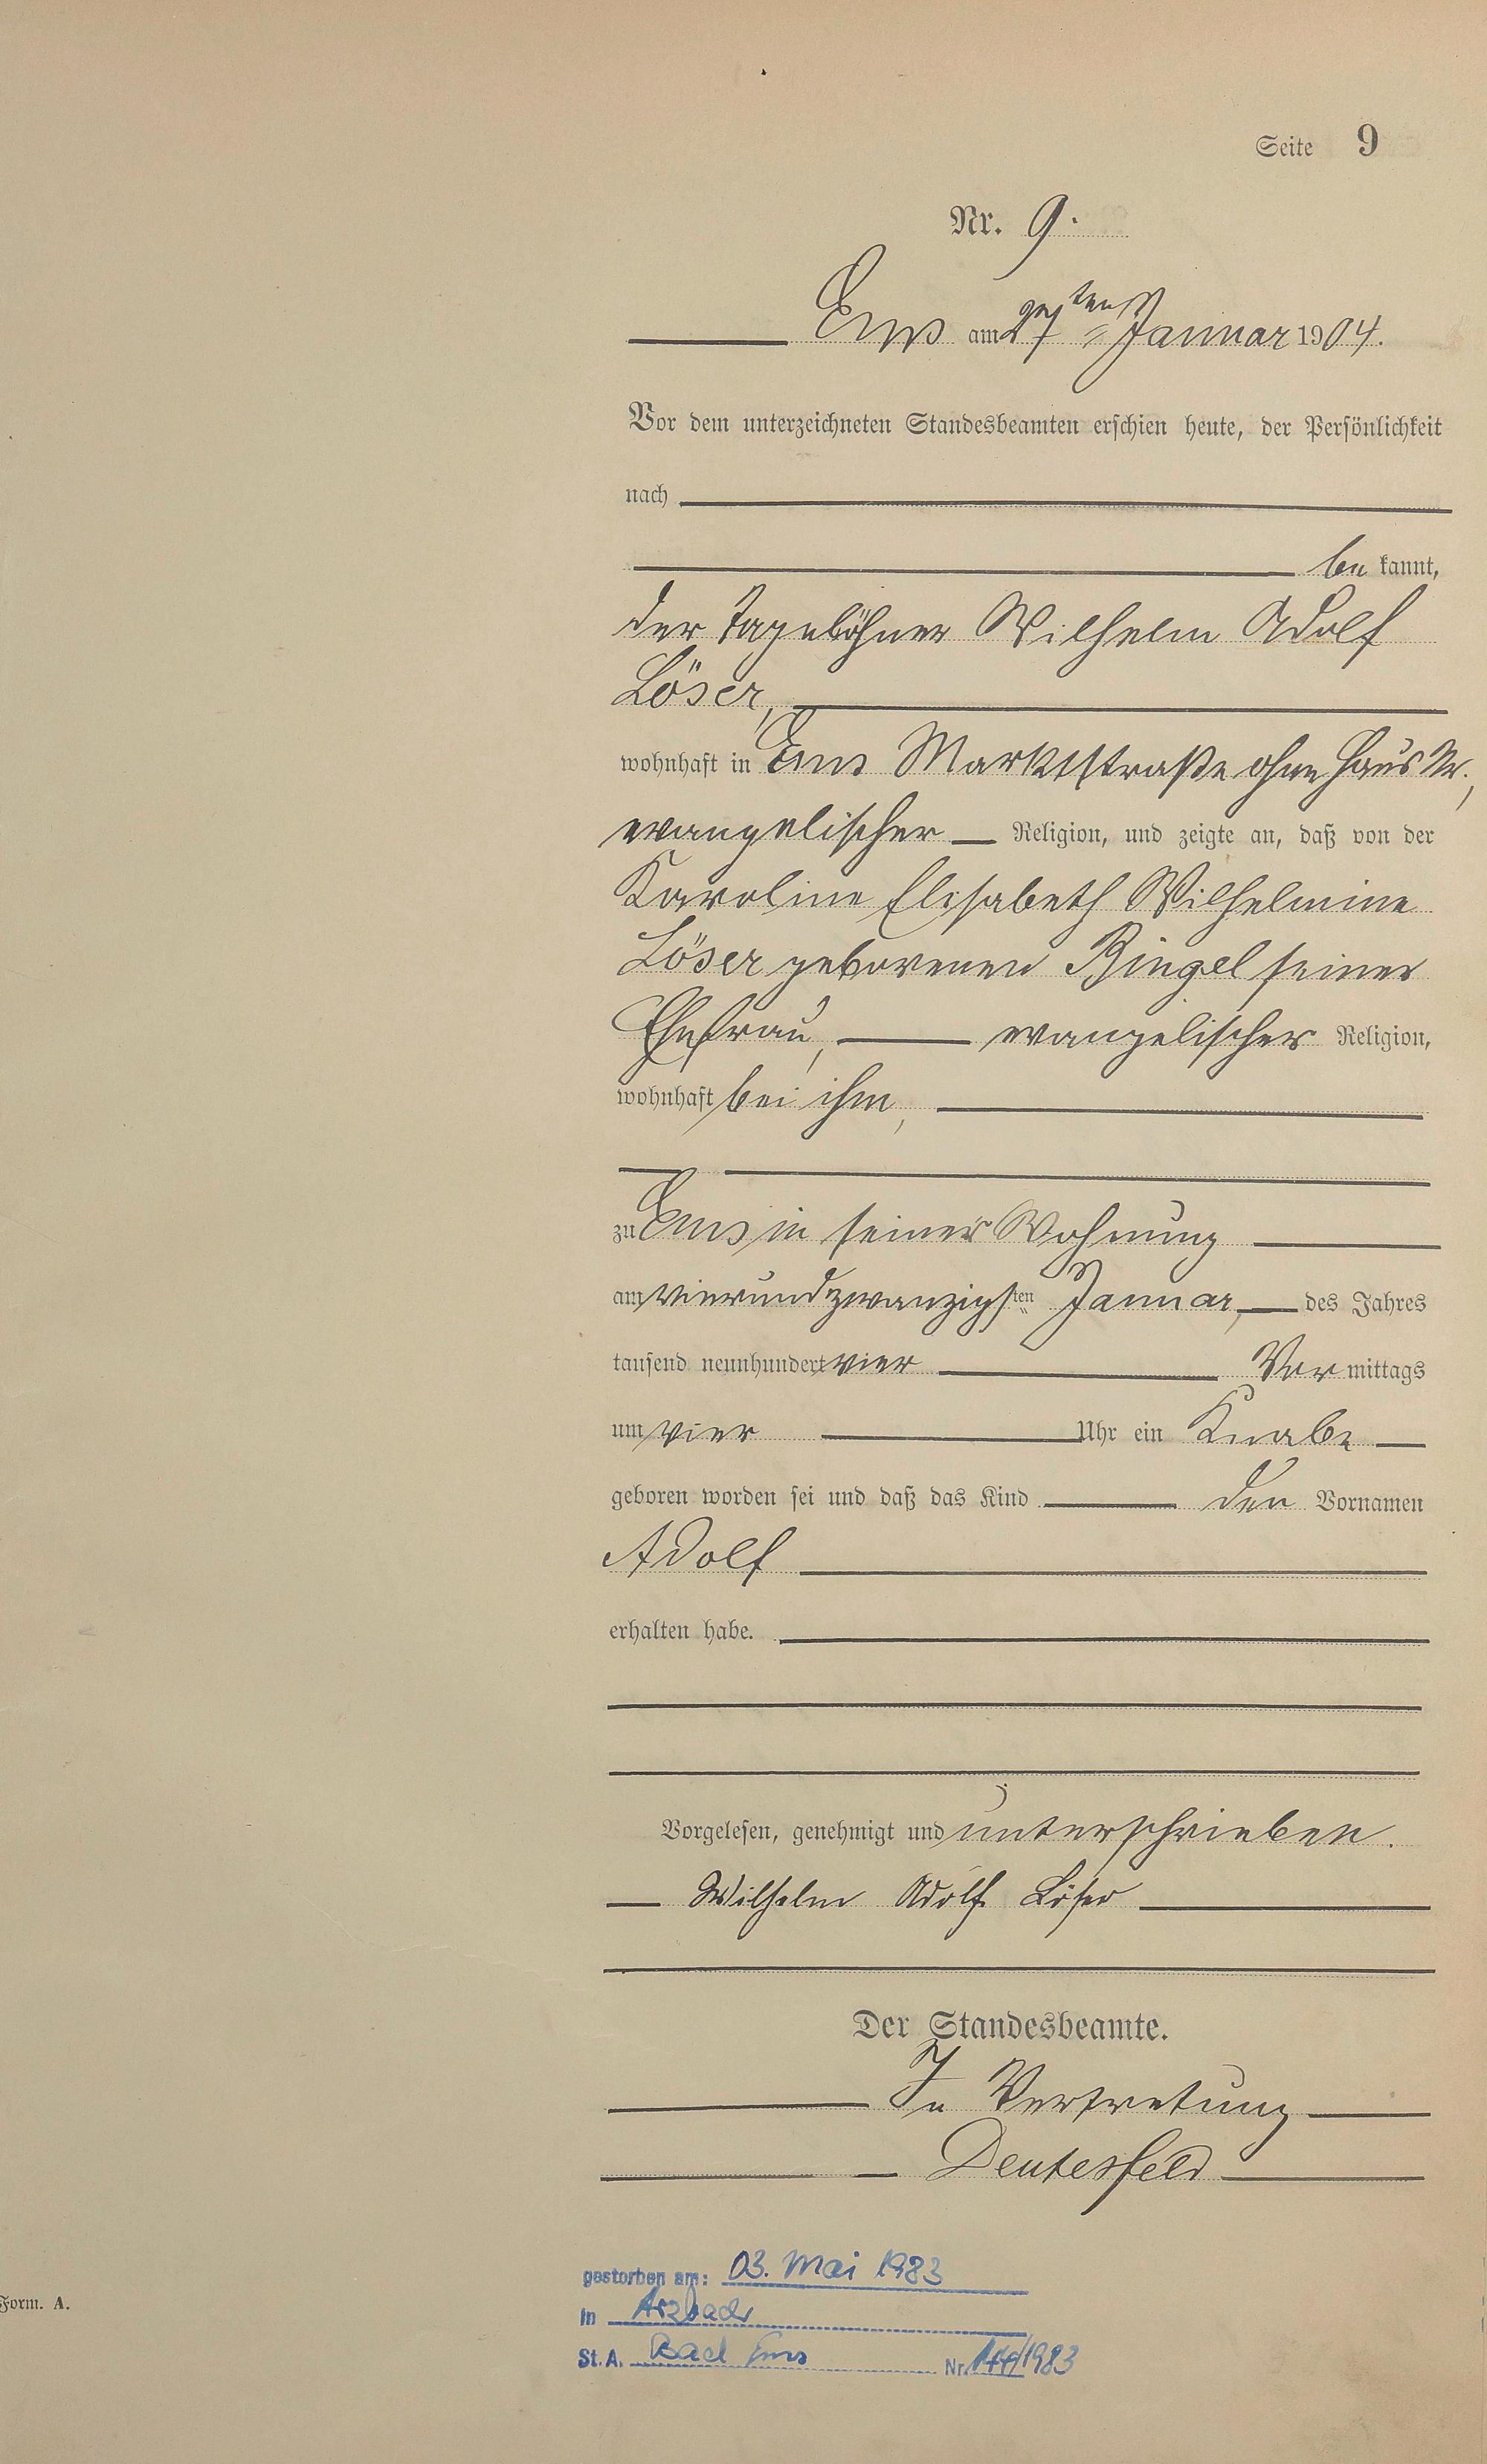 Seite 9
Nr. 9.
Ems am 27ten Januar 1904.
Vor dem unterzeichneten Standesbeamten erschien heute, der Persönlichkeit
nach
be kannt,
der Tagelöhner Wilhelm Adolf
Löser,
wohnhaft in Ems Marktstraße ohne Haus Nr.,
evangelischer Religion, und zeigte an, daß von der
Karoline Elisabeth Wilhelmine
Löser geborenen Bingel seiner
Ehefrau, evangelischer Religion,
wohnhaft bei ihm,
zu Ems in seiner Wohnung
am vierundzwanzigsten Januar, des Jahres
tausend neunhundert vier Vor mittags
um vier Uhr ein Knabe
geboren worden sei und daß das Kind den Vornamen
Adolf
erhalten habe.
Vorgelesen, genehmigt und unterschrieben.
Wilhelm Adolf Löser
Der Standesbeamte.
In Vertretung
Deutesfeld
gestorben am: 03. Mai 1983
in Arzbach
St. A. Bad Ems Nr. /1983
Form. A.